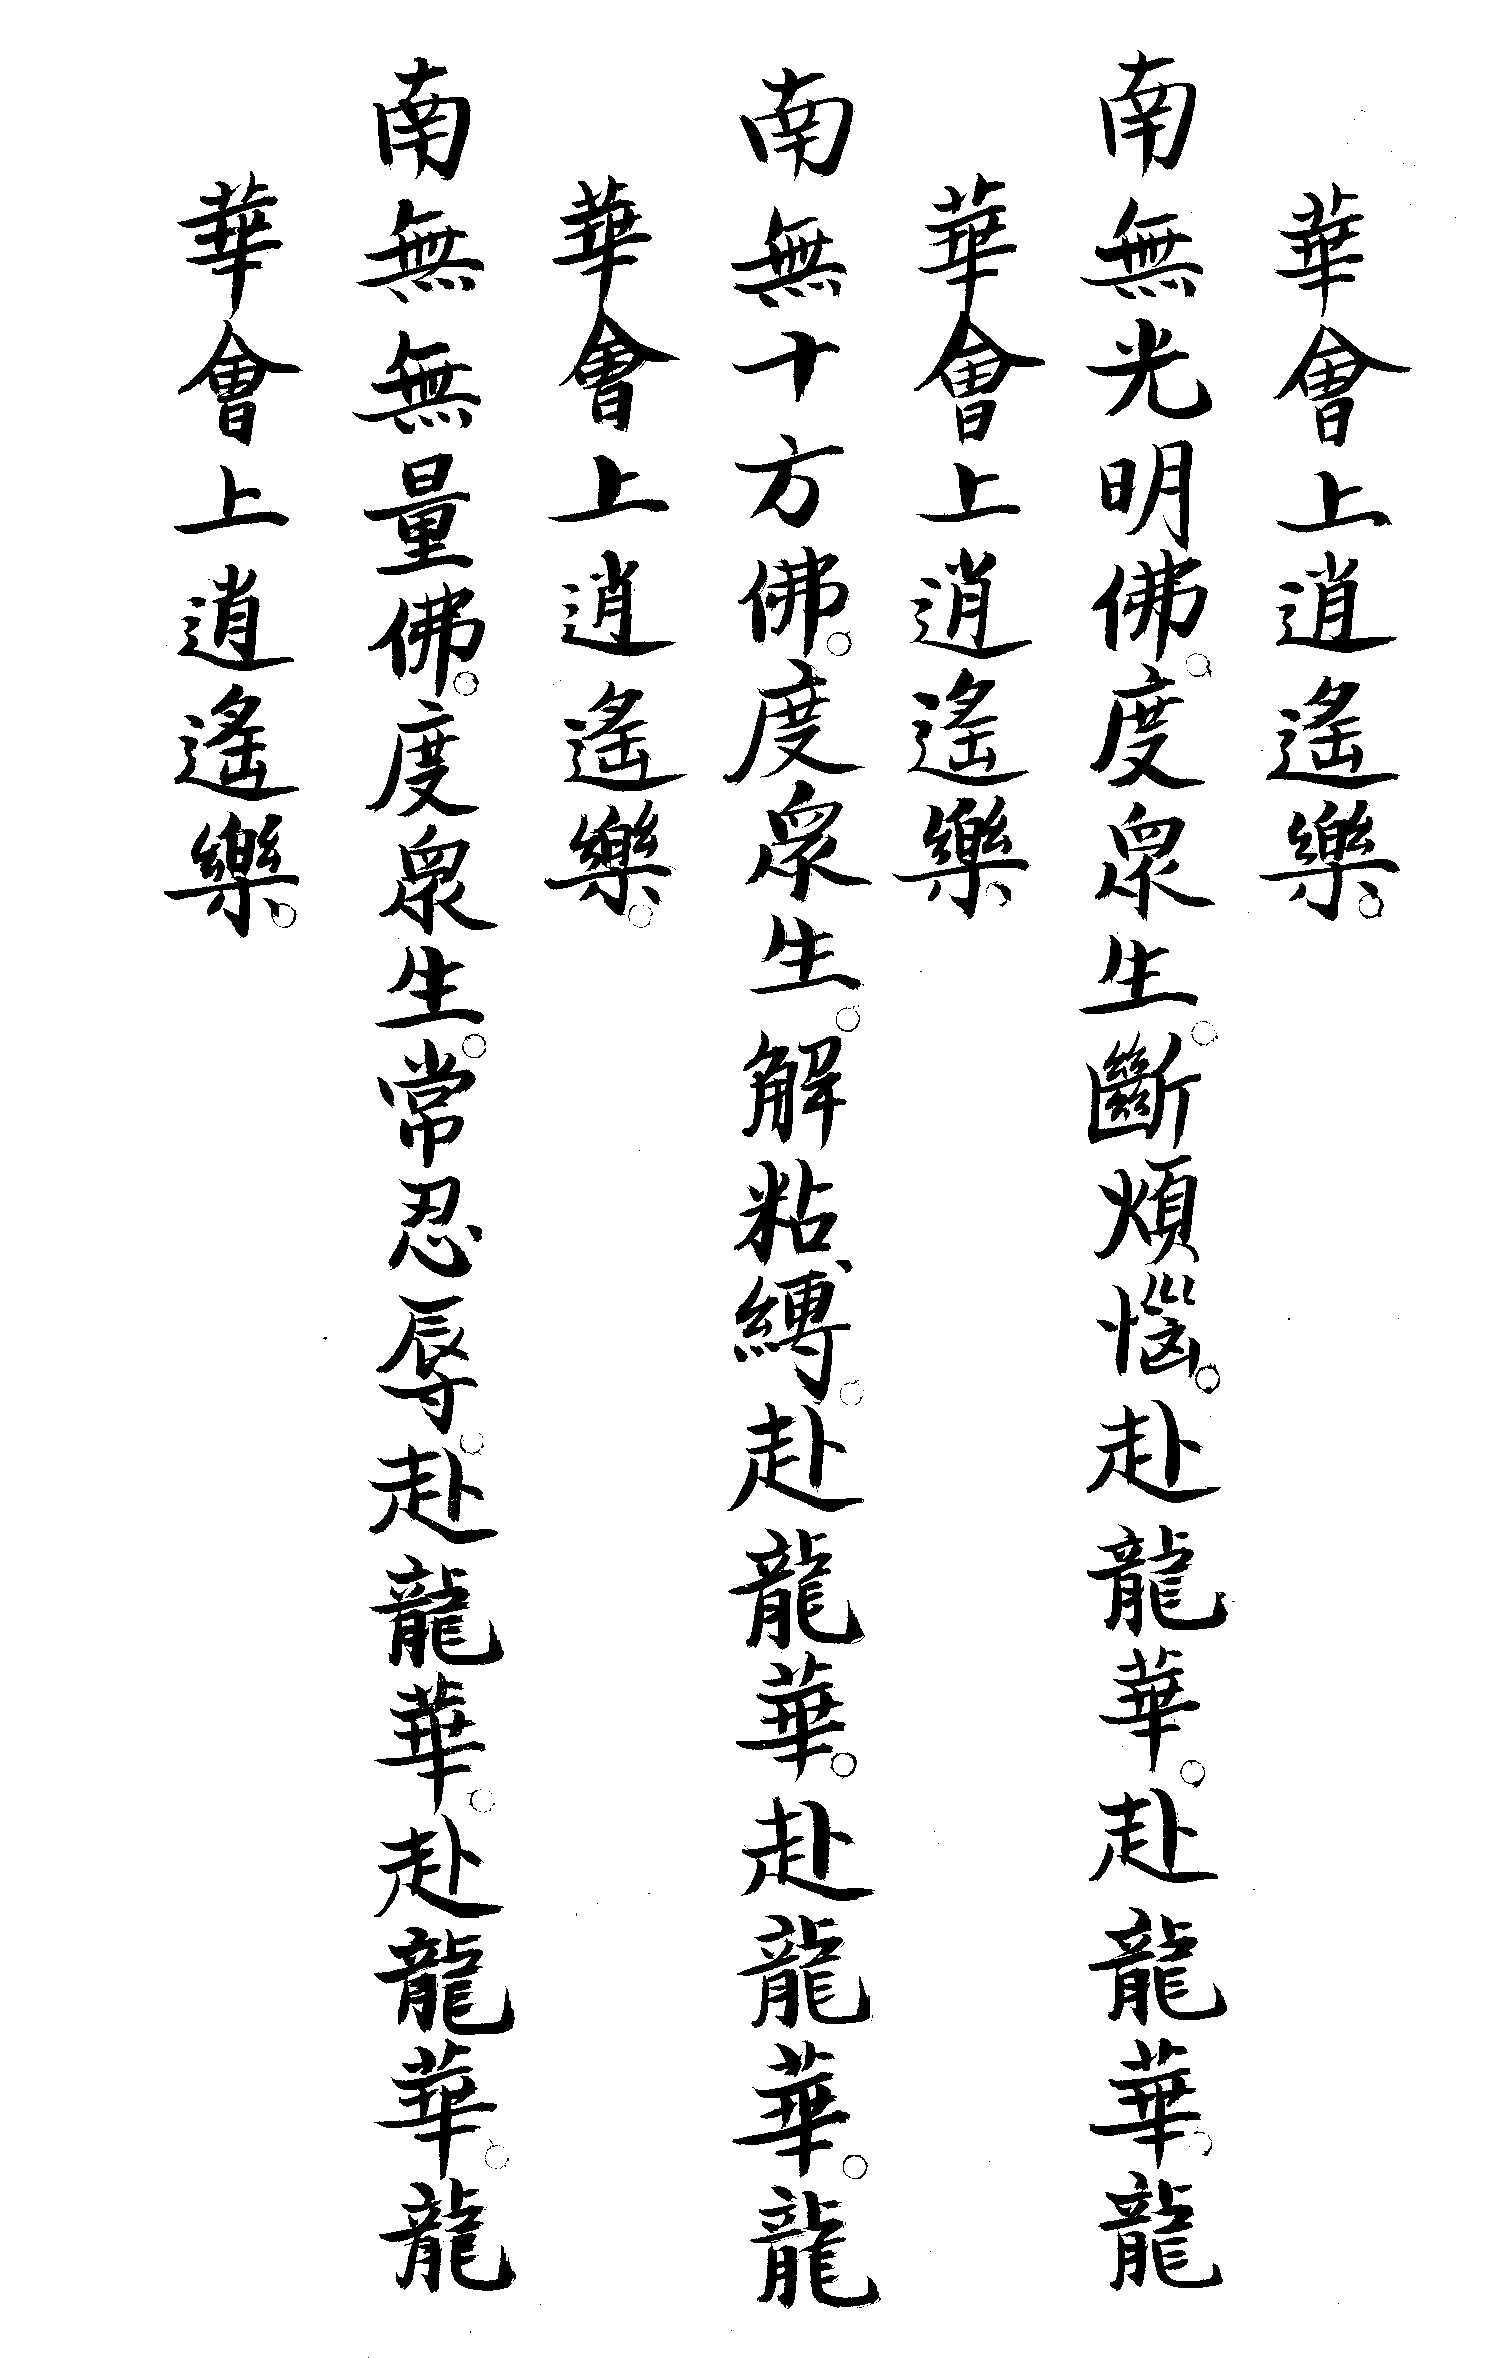 華會上逍遙樂。
南無光明佛。度眾生。斷煩惱。赴龍華。赴龍華。龍
華會上逍遙樂。
南無十方佛。度眾生。解粘縛。赴龍華。赴龍華。龍
華會上逍遙樂。
南無無量佛。度眾生。常忍辱。赴龍華。赴龍華。龍
華會上逍遙樂。